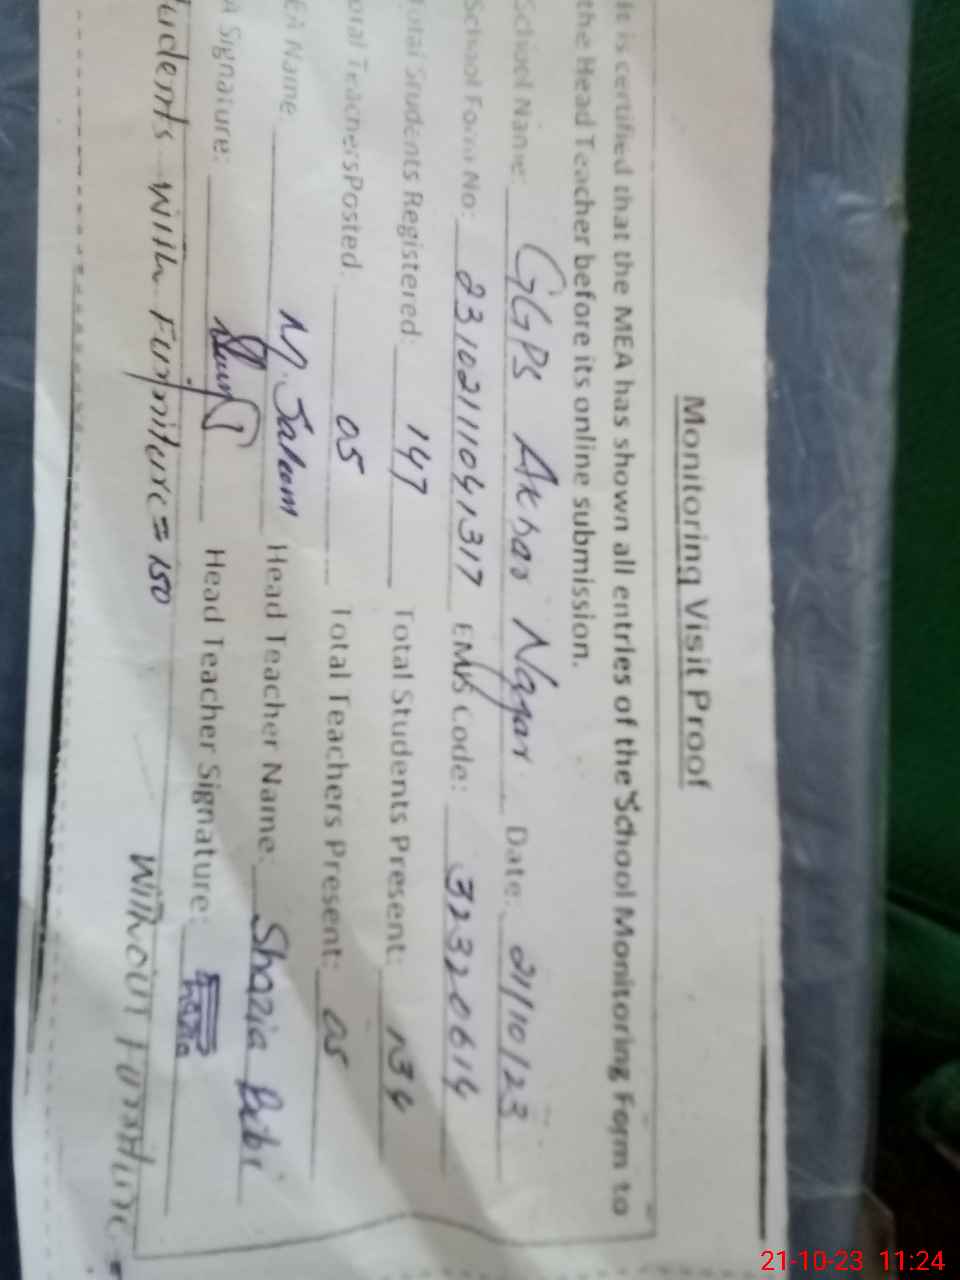 Monitoring Visit Proof
It is certified that the MEA has shown all entries of the School Monitoring Form to
the Head Teacher before its online submission.
School Name: GGPS Akbar Nagar Date: 21/10/23
School Form No: 23102111041317 EMIS Code: 32320614
Total Students Registered: 147 Total Students Present: 134
otal Teachers Posted 05 Total Teachers Present: 05
EA Name: M. Saleem Head Teacher Name: Shazia Bibi
A Signature: Head Teacher Signature: Shazia
udents with Furniture = 150 Without Furniture =
21-10-23 11:24